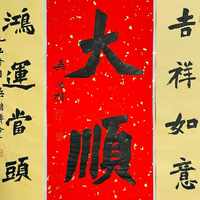 吉祥如意
大順
鴻運當頭